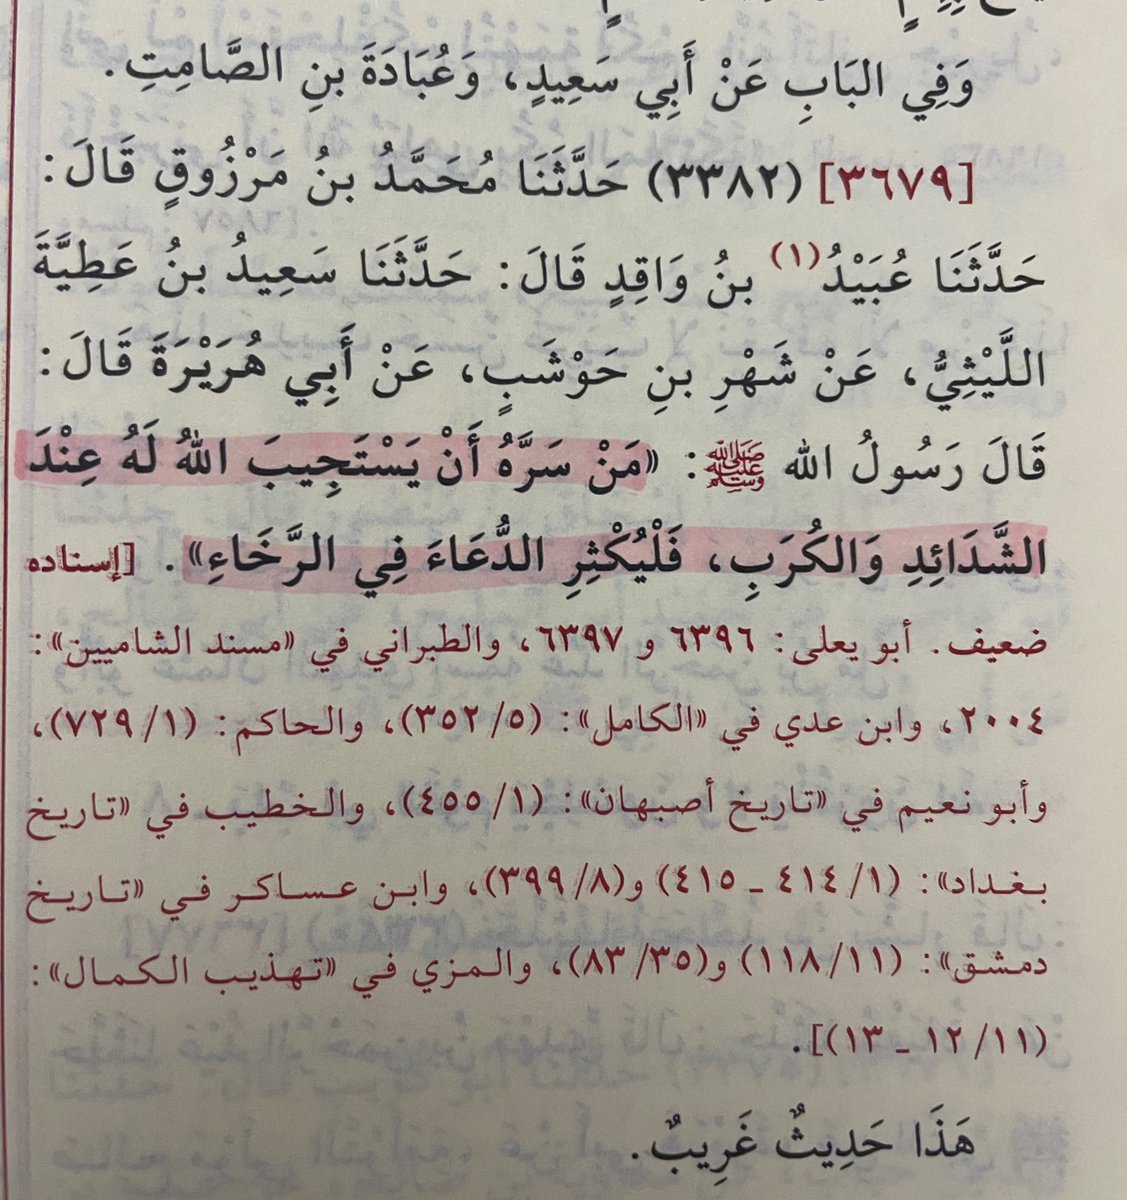 وَفِي البَابِ عَنْ أَبِي سَعِيدٍ، وَعُبَادَةَ بنِ الصَّامِتِ.
[٣٦٧٩] (٣٣٨٢) حَدَّثَنَا مُحَمَّدُ بنُ مَرْزُوقٍ قَالَ:
حَدَّثَنَا عُبَيْدُ(١) بنُ وَاقِدٍ قَالَ: حَدَّثَنَا سَعِيدُ بنُ عَطِيَّةَ
اللَّيْثِيُّ، عَنْ شَهْرِ بنِ حَوْشَبٍ، عَنْ أَبِي هُرَيْرَةَ قَالَ:
قَالَ رَسُولُ الله ﷺ: «مَنْ سَرَّهُ أَنْ يَسْتَجِيبَ اللهُ لَهُ عِنْدَ
الشَّدَائِدِ وَالكُرَبِ، فَلْيُكْثِرِ الدُّعَاءَ فِي الرَّخَاءِ». [إسناده
ضعيف. أبو يعلى: ٦٣٩٦ و ٦٣٩٧، والطبراني في «مسند الشاميين»:
٢٠٠٤، وابن عدي في «الكامل»: (٥/ ٣٥٢)، والحاكم: (١/ ٧٢٩)،
وأبو نعيم في «تاريخ أصبهان»: (١/ ٤٥٥)، والخطيب في «تاريخ
بغداد»: (١/ ٤١٤ ـ ٤١٥) و(٨/ ٣٩٩)، وابن عساكر في «تاريخ
دمشق»: (١١/ ١١٨) و(٣٥/ ٨٣)، والمزي في «تهذيب الكمال»:
(١١/ ١٢ ـ ١٣)].
هَذَا حَدِيثٌ غَرِيبٌ.